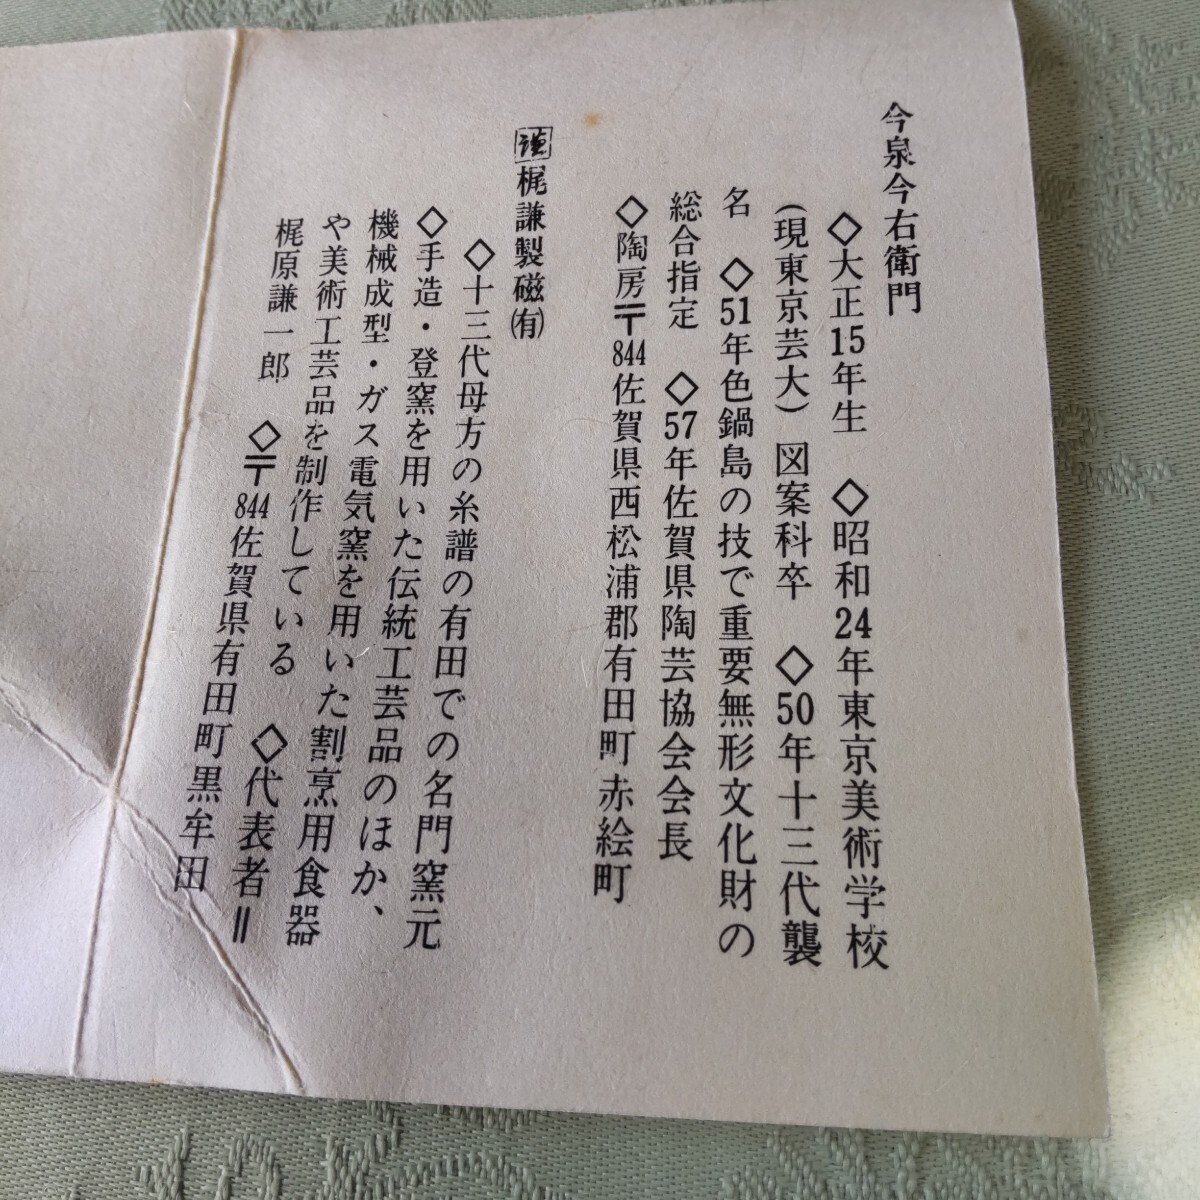 今泉今右衛門
◇大正15年生　◇昭和24年東京美術学校
(現東京芸大)図案科卒　◇50年十三代襲
名　◇51年色鍋島の技で重要無形文化財の
総合指定　◇57年佐賀県陶芸協会会長
◇陶房〒844佐賀県西松浦郡有田町赤絵町
謙梶謙製磁㈲
◇十三代母方の糸譜の有田での名門窯元
◇手造・登窯を用いた伝統工芸品のほか、
機械成型・ガス電気窯を用いた割烹用食器
や美術工芸品を制作している　◇代表者＝
梶原謙一郎　◇〒844佐賀県有田町黒牟田